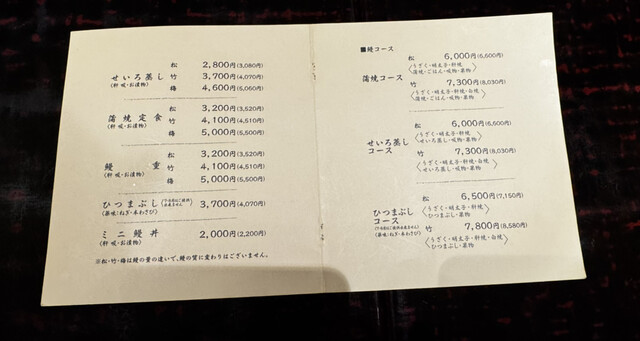 松 2,800円(3,080円)
せいろ蒸し 竹 3,700円(4,070円)
(肝吸・お漬物)
梅 4,600円(5,060円)
松 3,200円(3,520円)
蒲焼定食 竹 4,100円(4,510円)
(肝吸・お漬物)
梅 5,000円(5,500円)
松 3,200円(3,520円)
鰻重 竹 4,100円(4,510円)
(肝吸・お漬物)
梅 5,000円(5,500円)
ひつまぶし 3,700円(4,070円)
(薬味:ねぎ・本わさび)
ミニ鰻丼 2,000円(2,200円)
(肝吸・お漬物)
※松・竹・梅は鰻の量の違いで、鰻の質に変わりはございません。
■鰻コース
松 6,000円(6,600円)
蒲焼コース
〈うざく・明太子・肝焼
蒲焼・ごはん・吸物・果物〉
竹 7,300円(8,030円)
〈うざく・明太子・肝焼・白焼
蒲焼・ごはん・吸物・果物〉
松 6,000円(6,600円)
せいろ蒸し
コース
〈うざく・明太子・肝焼
せいろ蒸し・吸物・果物〉
竹 7,300円(8,030円)
〈うざく・明太子・肝焼・白焼
せいろ蒸し・吸物・果物〉
松 6,500円(7,150円)
ひつまぶし
コース
(薬味:ねぎ・本わさび)
〈うざく・明太子・肝焼
ひつまぶし・果物〉
竹 7,800円(8,580円)
〈うざく・明太子・肝焼・白焼
ひつまぶし・果物〉